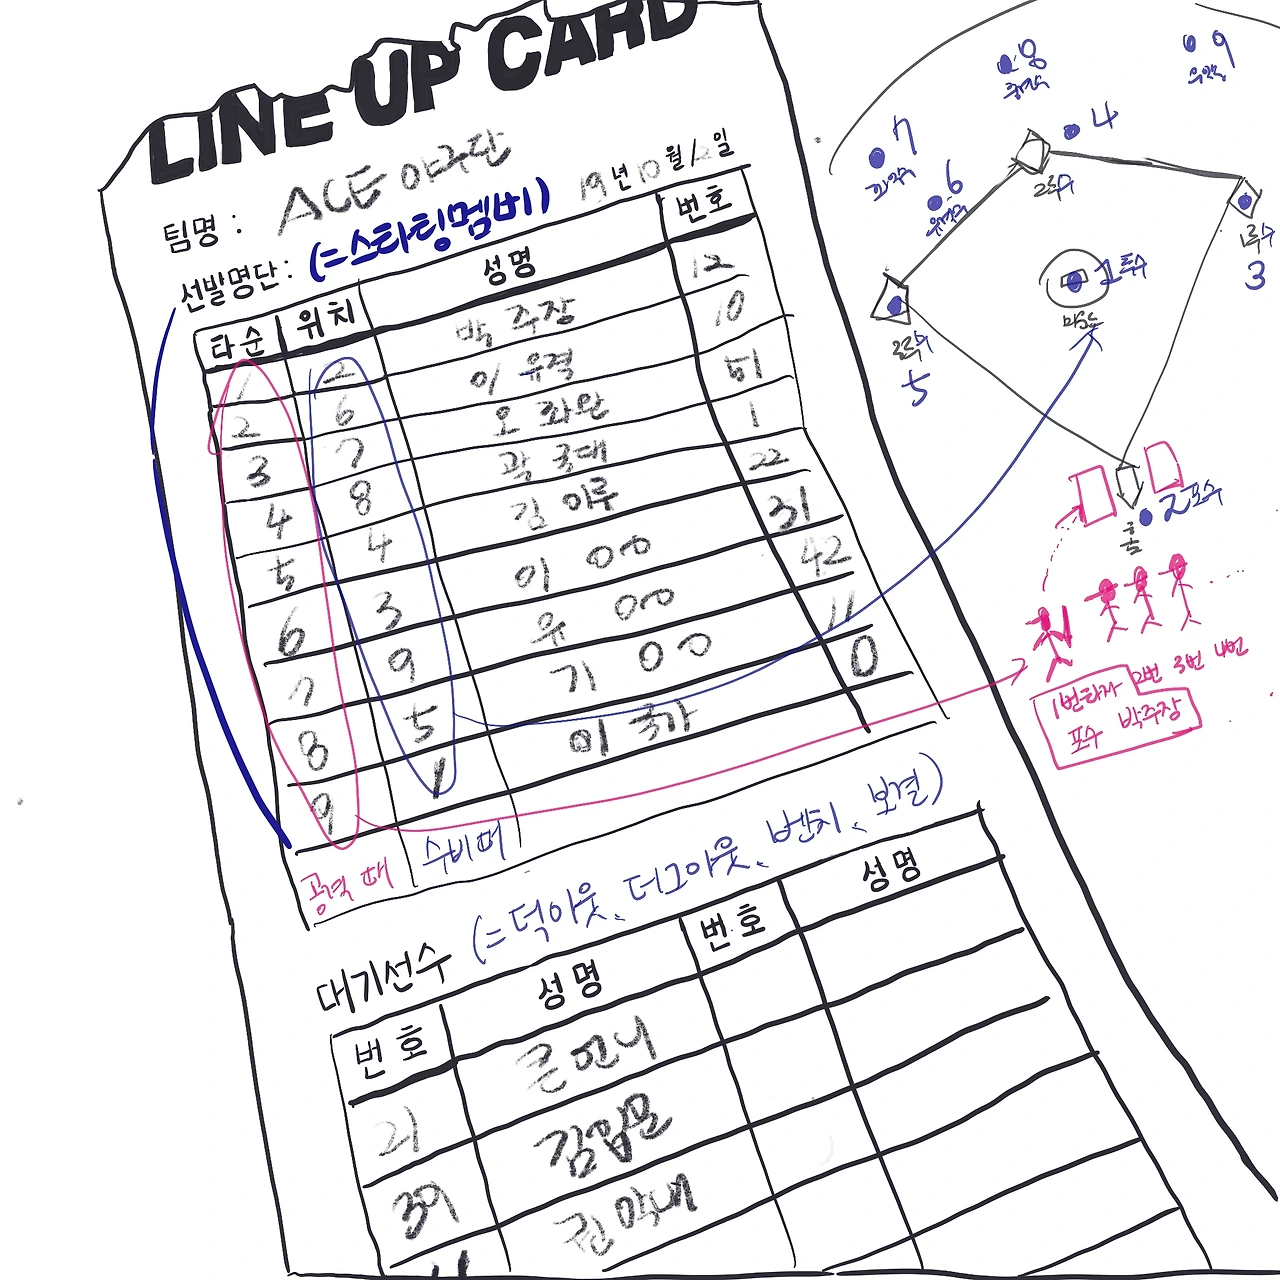 LINE UP CARD
팀명 : ACE 야구단
19년 10월 12일
선발명단 : (=스타팅멤버)
타순 위치 성명 번호
1 2 박 주장 12
2 6 이 유격 10
3 7 오 좌완 51
4 8 곽 국대 1
5 4 김 이루 22
6 3 이 ㅇㅇ 31
7 9 유 ㅇㅇ 42
8 5 기 ㅇㅇ 11
9 1 이 국가 0
공격 때 수비 때
대기선수 (=덕아웃、더그아웃、벤치、보결)
번호 성명 번호 성명
21 큰언니
39 김입문
권막내
8
중견수
9
우익수
7
좌익수
6
유격수
4
2루수
1루수
3
1투수
마운드
3루수
5
2포수
홈
2번 3번 4번
1번타자
포수 박주장